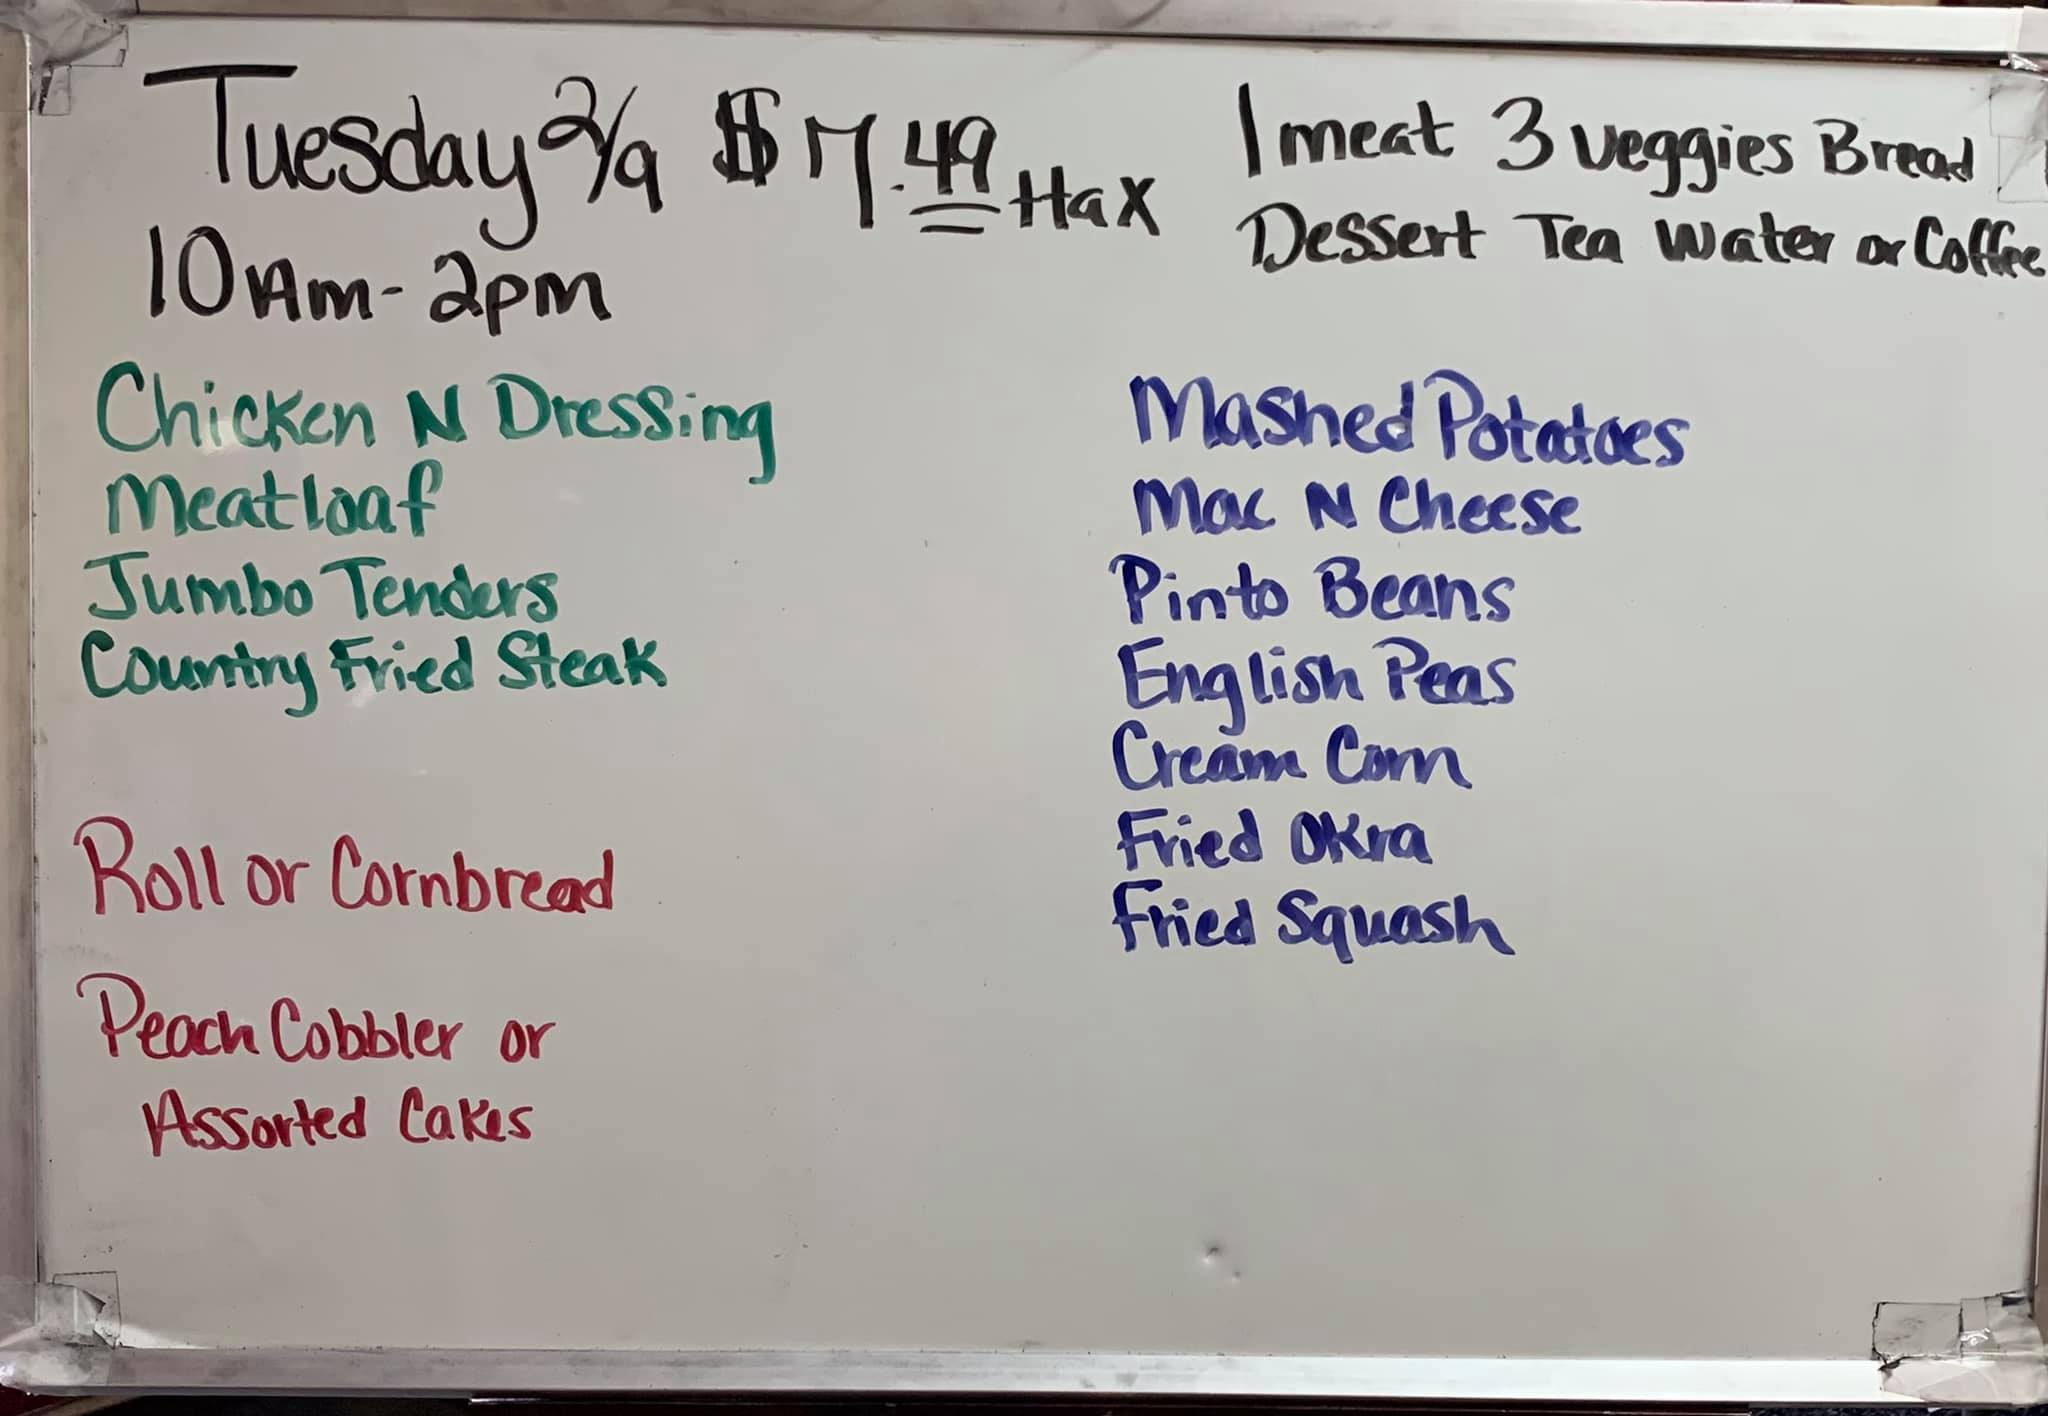 Tuesday 2/9 $7.49 +tax
10am-2pm
1 meat 3 veggies Bread
Dessert Tea Water or Coffee
Chicken N Dressing
Meatloaf
Jumbo Tenders
Country Fried Steak
Roll or Cornbread
Peach Cobbler or
Assorted Cakes
Mashed Potatoes
Mac N Cheese
Pinto Beans
English Peas
Cream Corn
Fried Okra
Fried Squash